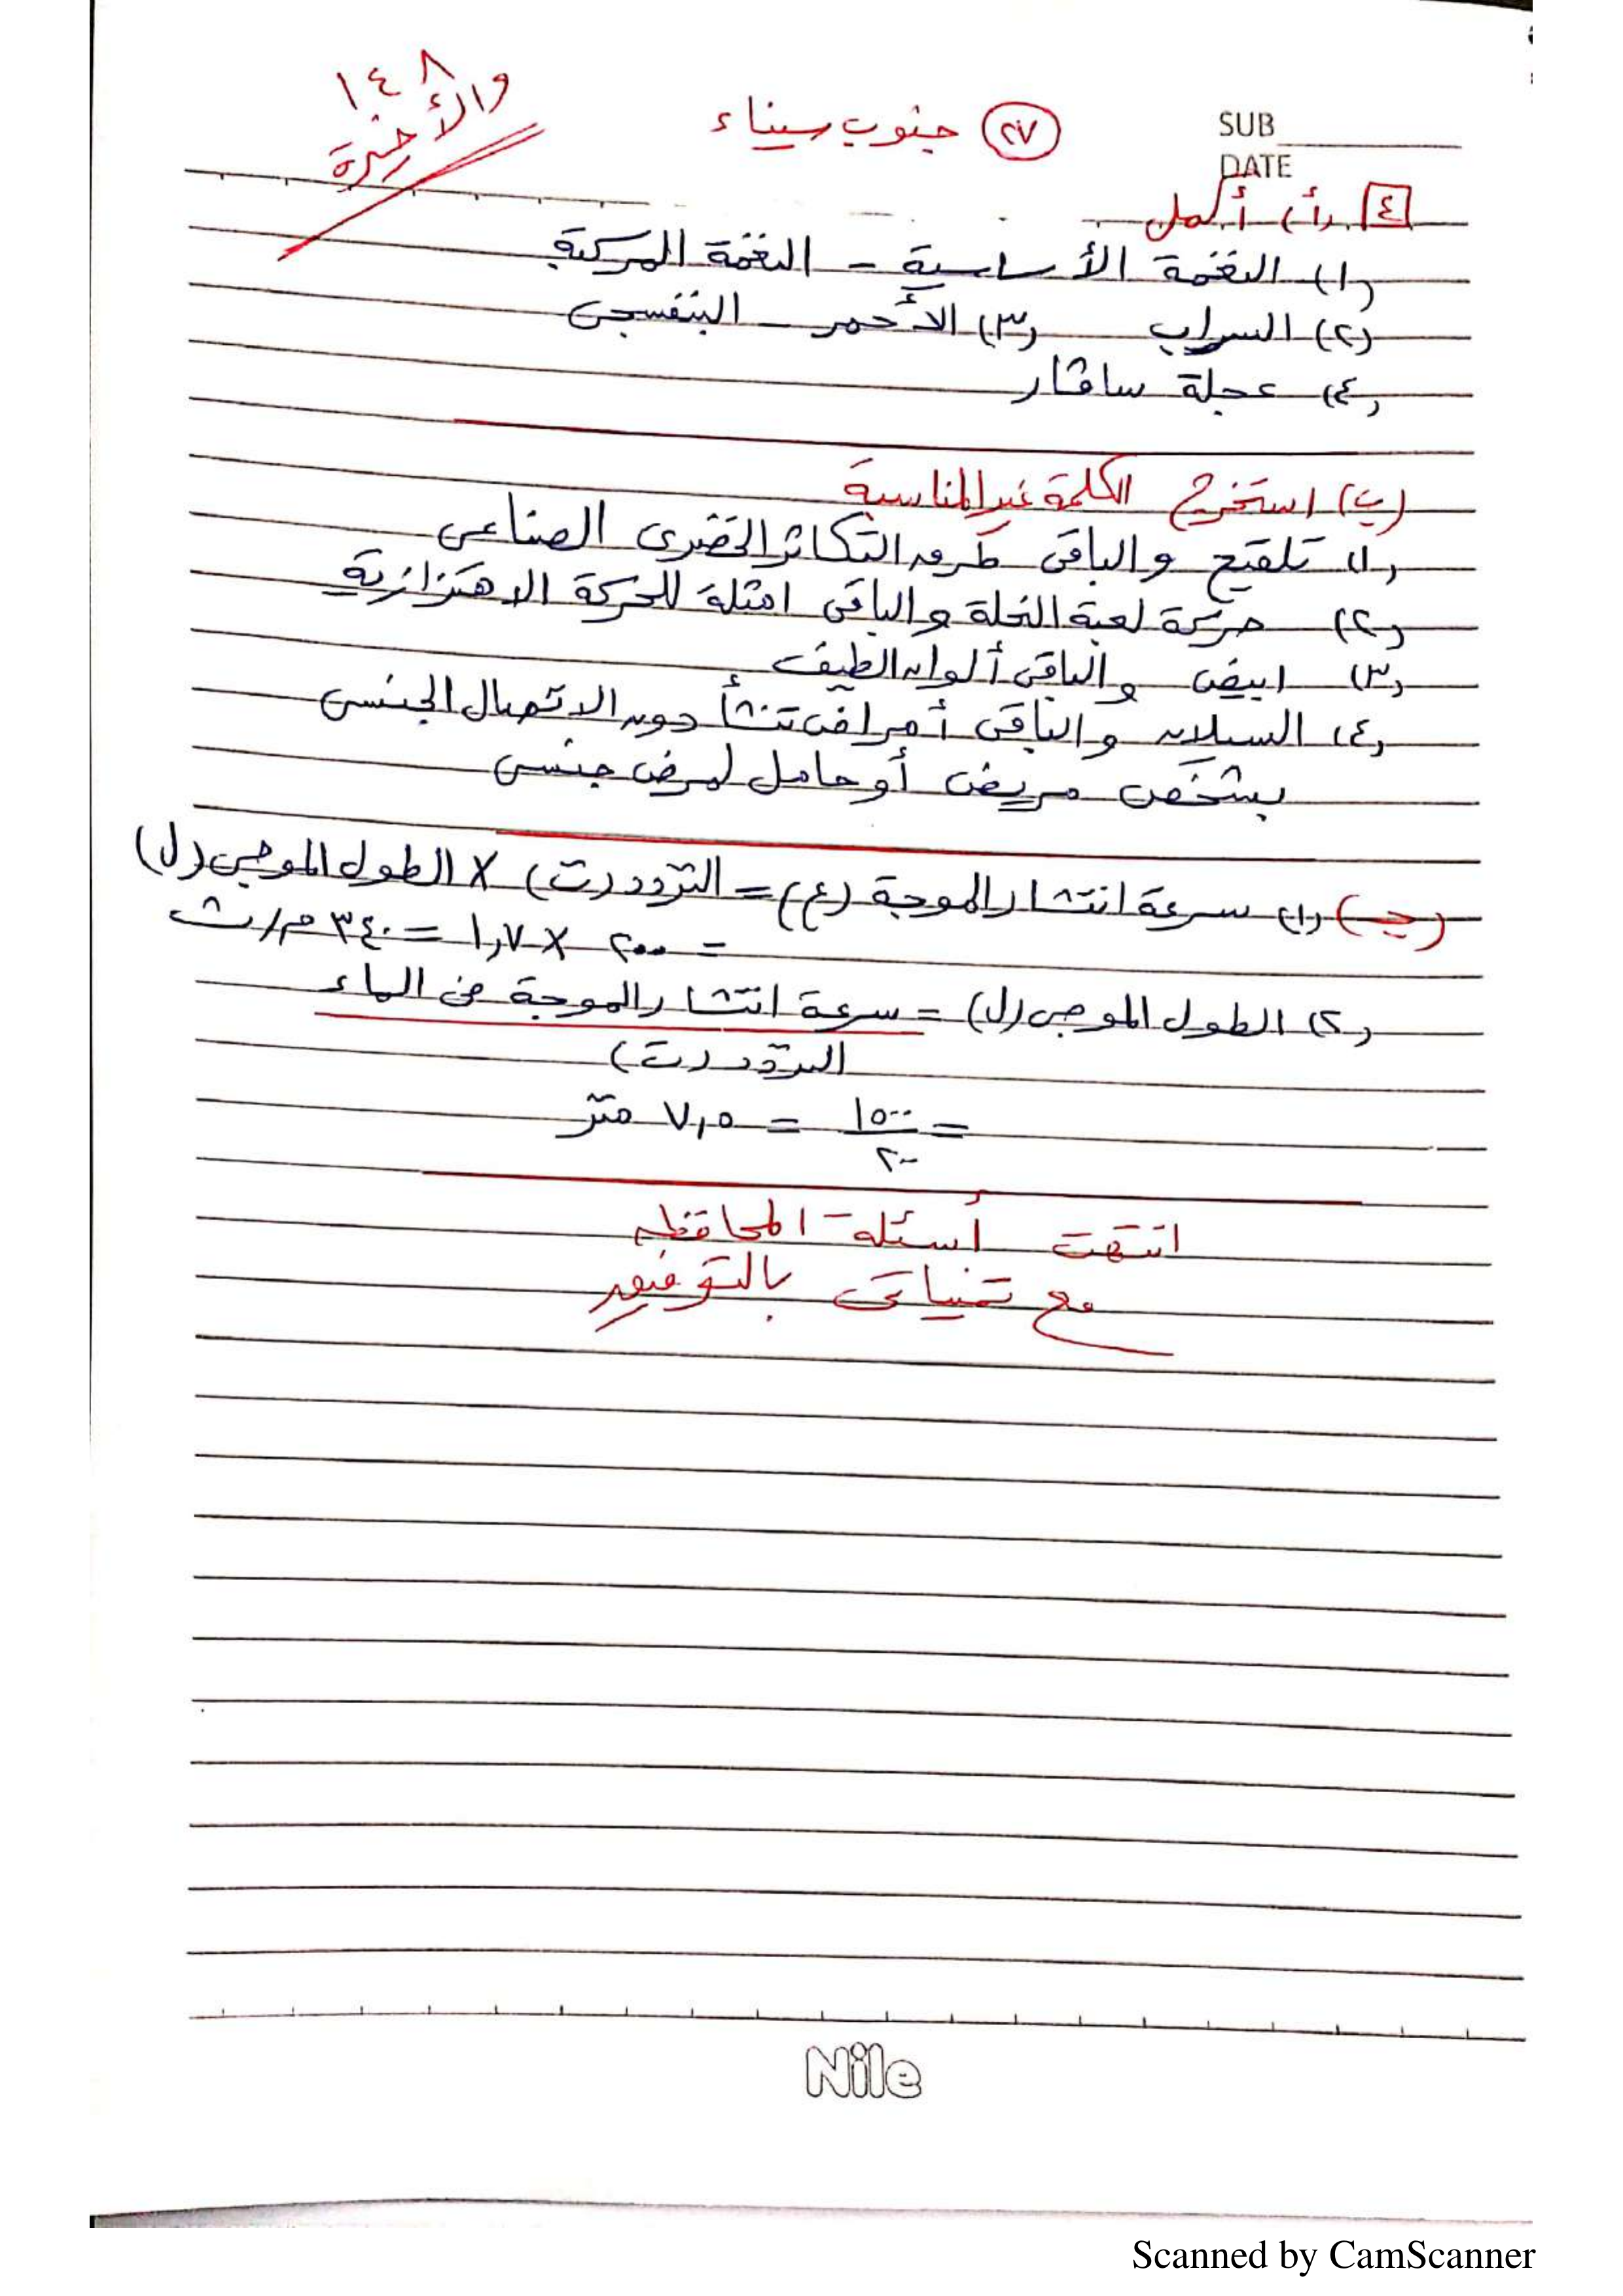 SUB
DATE
٢٧ جنوب سيناء
١٤٨
والأخيرة
٤ (أ) أكمل
(١) النغمة الأساسية - النغمة المركبة
(٢) السراب (٣) الأحمر - البنفسجى
(٤) عجلة سافار
(ب) استخرج الكلمة غير المناسبة
(١) تلقيح والباقى طرق التكاثر الخضرى الصناعى
(٢) حركة لعبة النحلة والباقى امثلة للحركة الاهتزازية
(٣) ابيض والباقى ألوان الطيف
(٤) السيلان والباقى أمراض تنشأ دون الاتصال الجنسى
بشخص مريض أو حامل لمرض جنسى
(جـ) (١) سرعة انتشار الموجة (ع) = التردد (ت) × الطول الموجى (ل)
= ٢٠٠٠ × ١,٧ = ٣٤٠ م/ث
(٢) الطول الموجى (ل) = سرعة انتشار الموجة فى الماء
التردد (ت)
= ١٥٠٠ = ٧,٥ متر
٢٠٠
انتهت أسئلة المحافظة
مع تمنياتى بالتوفيق
Nile
Scanned by CamScanner